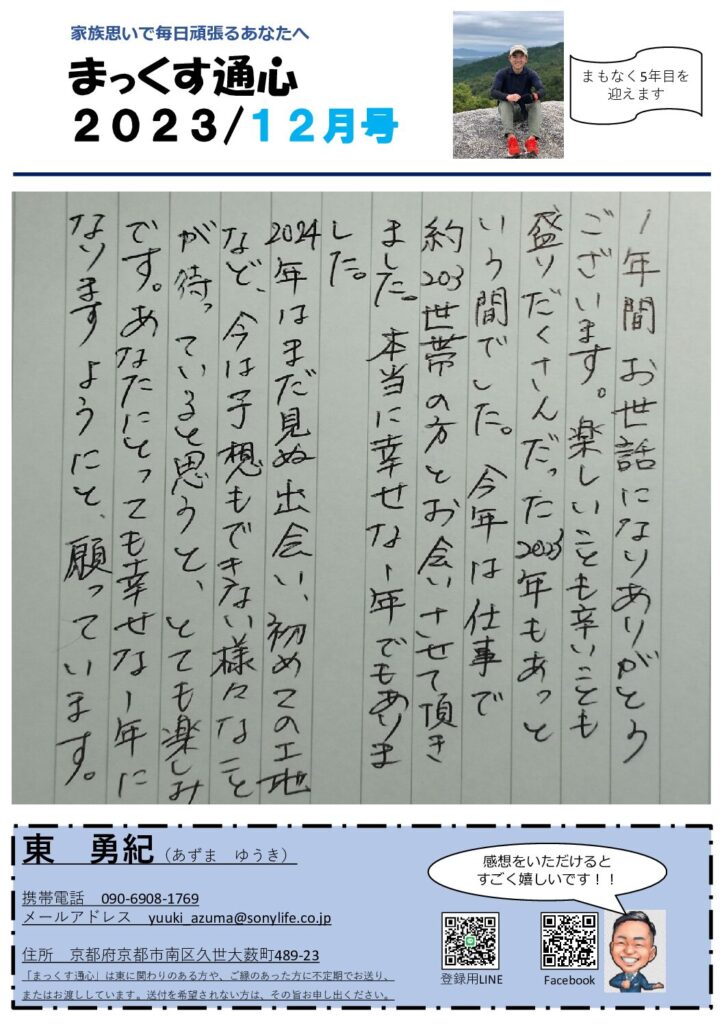 家族思いで毎日頑張るあなたへ
まっくす通心
2023/12月号
まもなく5年目を
迎えます
1年間お世話になりありがとう
ございます。楽しいことも辛いことも
盛りだくさんだった2023年もあっと
いう間でした。今年は仕事で
約203世帯の方とお会いさせて頂き
ました。本当に幸せな1年でもありま
した。
2024年はまだ見ぬ出会い、初めての土地
など、今は予想もできない様々なこと
が待っていると思うと、とても楽しみ
です。あなたにとっても幸せな1年に
なりますようにと、願っています。
東 勇紀(あずま ゆうき)
携帯電話 090-6908-1769
メールアドレス yuuki_azuma@sonylife.co.jp
住所 京都府京都市南区久世大薮町489-23
「まっくす通心」は東に関わりのある方や、ご縁のあった方に不定期でお送り、
またはお渡ししています。送付を希望されない方は、その旨お申し出ください。
感想をいただけると
すごく嬉しいです！！
登録用LINE
Facebook